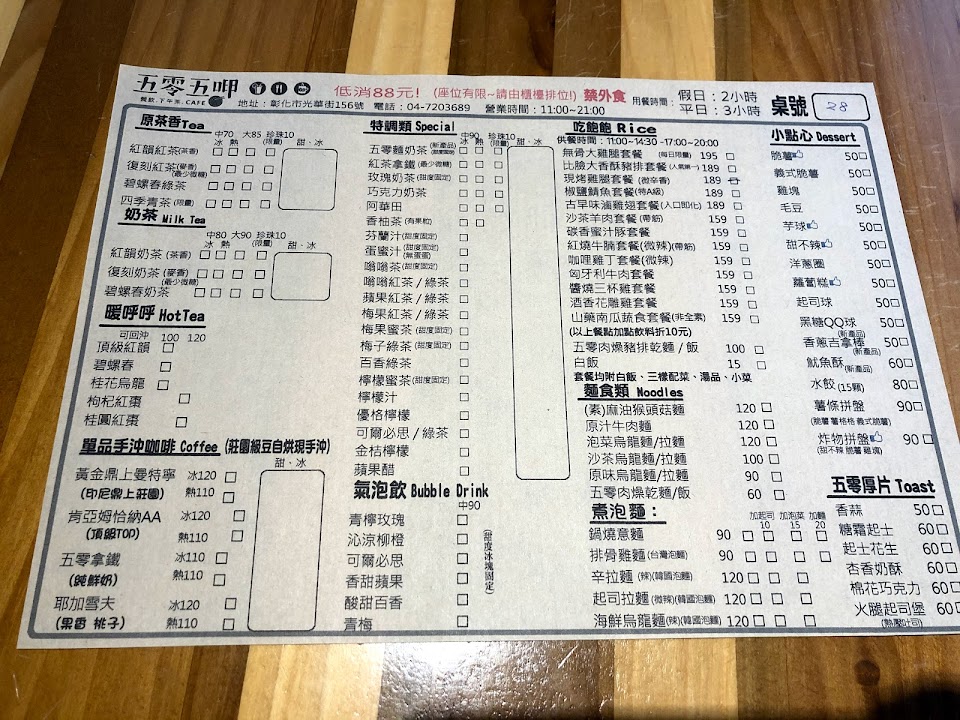 五零五呷
餐飲.下午茶.CAFE
低消88元! (座位有限~請由櫃檯排位!) 禁外食
地址：彰化市光華街156號 電話：04-7203689 營業時間：11:00~21:00
用餐時間：
假日：2小時
平日：3小時
桌號 28
原茶香Tea
中70 大85 珍珠10
冰 熱 (限量) 甜．冰
紅韻紅茶(茶香)
復刻紅茶(麥香)
(最少微糖)
碧螺春綠茶
四季青茶(限量)
奶茶 Milk Tea
中80 大90 珍珠10
冰 熱 (限量) 甜．冰
紅韻奶茶(茶香)
復刻奶茶(麥香)
(最少微糖)
碧螺春奶茶
暖呼呼 HotTea
可回沖 100 120
頂級紅韻
碧螺春
桂花烏龍
枸杞紅棗
桂圓紅棗
單品手沖咖啡 Coffee (莊園級豆自烘現手沖)
甜．冰
黃金鼎上曼特寧 冰120
(印尼鼎上莊園) 熱110
肯亞姆恰納AA 冰120
(頂級TOP) 熱110
五零拿鐵 冰110
(純鮮奶) 熱110
耶加雪夫 冰120
(果香 桃子) 熱110
特調類 Special
中90 珍珠10
冰 熱 (限量) 甜．冰
五零麵奶茶(新產品)(甜度固定)
紅茶拿鐵(最少微糖)
玫瑰奶茶(甜度固定)
巧克力奶茶
阿華田
香柚茶(有果粒)
芬蘭汁(甜度固定)
蛋蜜汁(甜度固定)(無蛋蜜)
嗡嗡茶(甜度固定)
嗡嗡紅茶/綠茶
蘋果紅茶/綠茶
梅果紅茶/綠茶
梅果蜜茶(甜度固定)
梅子綠茶(甜度固定)
百香綠茶
檸檬蜜茶(甜度固定)
檸檬汁
優格檸檬
可爾必思/綠茶
金桔檸檬
蘋果醋
氣泡飲 Bubble Drink
中90
青檸玫瑰
沁涼柳橙
可爾必思
香甜蘋果
酸甜百香
青梅
(甜度冰塊固定)
吃飽飽 Rice
供餐時間：11:00~14:30 -17:00~20:00
無骨大雞腿套餐 (每日限量) 195
比臉大香酥豬排套餐(人氣第一) 189
現烤雞腿套餐 (微辛香) 189
椒鹽鯖魚套餐(特A級) 189
古早味滷雞翅套餐(人口即化) 189
沙茶羊肉套餐(帶筋) 159
碳香蜜汁豚套餐 159
紅燒牛腩套餐(微辣)(帶筋) 159
咖哩雞丁套餐(微辣) 159
匈牙利牛肉套餐 159
醬燒三杯雞套餐 159
酒香花雕雞套餐 159
山藥南瓜蔬食套餐(非全素) 159
(以上餐點加點飲料折10元)
五零肉燥豬排乾麵/飯 100
白飯 15
套餐均附白飯、三樣配菜、湯品、小菜
麵食類 Noodles
(素)麻油猴頭菇麵 120
原汁牛肉麵 120
泡菜烏龍麵/拉麵 120
沙茶烏龍麵/拉麵 100
原味烏龍麵/拉麵 90
五零肉燥乾麵/飯 60
煮泡麵：
加起司 加泡菜 加麵
10 15 20
鍋燒意麵 90
排骨雞麵(台灣泡麵) 90
辛拉麵 (辣)(韓國泡麵) 120
起司拉麵 (微辣)(韓國泡麵) 120
海鮮烏龍麵(辣)(韓國泡麵) 120
小點心 Dessert
脆薯 50
義式脆薯 50
雞塊 50
毛豆 50
芋球 50
甜不辣 50
洋蔥圈 50
蘿蔔糕 50
起司球 50
黑糖QQ球 50
(新產品)
香蔥吉拿棒 50
(新產品)
魷魚酥 60
(新產品)
水餃(15顆) 80
薯條拼盤 90
(脆薯 薯格格 義式脆薯)
炸物拼盤 90
(甜不辣 脆薯 雞塊)
五零厚片 Toast
香蒜 50
糖霜起士 60
起士花生 60
杏香奶酥 60
棉花巧克力 60
火腿起司堡 60
(熱壓吐司)